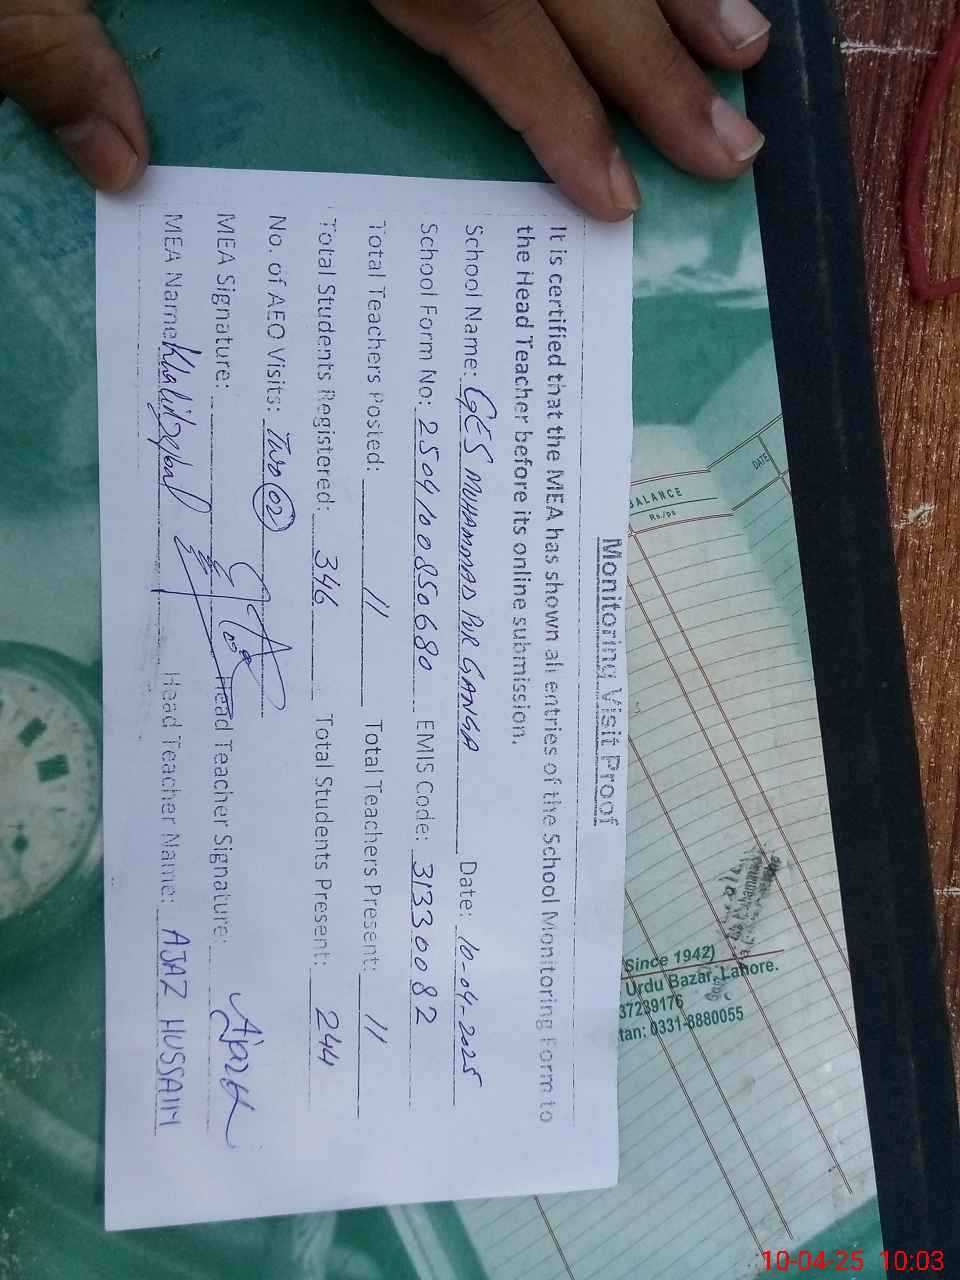 Monitoring Visit Proof
It is certified that the MEA has shown all entries of the School Monitoring Form to
the Head Teacher before its online submission.
School Name: GES MUHAMMAD PUR GANGA Date: 10-04-2025
School Form No: 25041008550680 EMIS Code: 31330082
Total Teachers Posted: 11 Total Teachers Present: 11
Total Students Registered: 346 Total Students Present: 244
No. of AEO Visits: Two (02)
MEA Signature: Head Teacher Signature:
MEA Name: Khalid Iqbal Head Teacher Name: AJAZ HUSSAIN
DATE
BALANCE
Rs./ps
Since 1942)
Urdu Bazar, Lahore.
37239176
tan: 0331-8880055
10-04-25 10:03